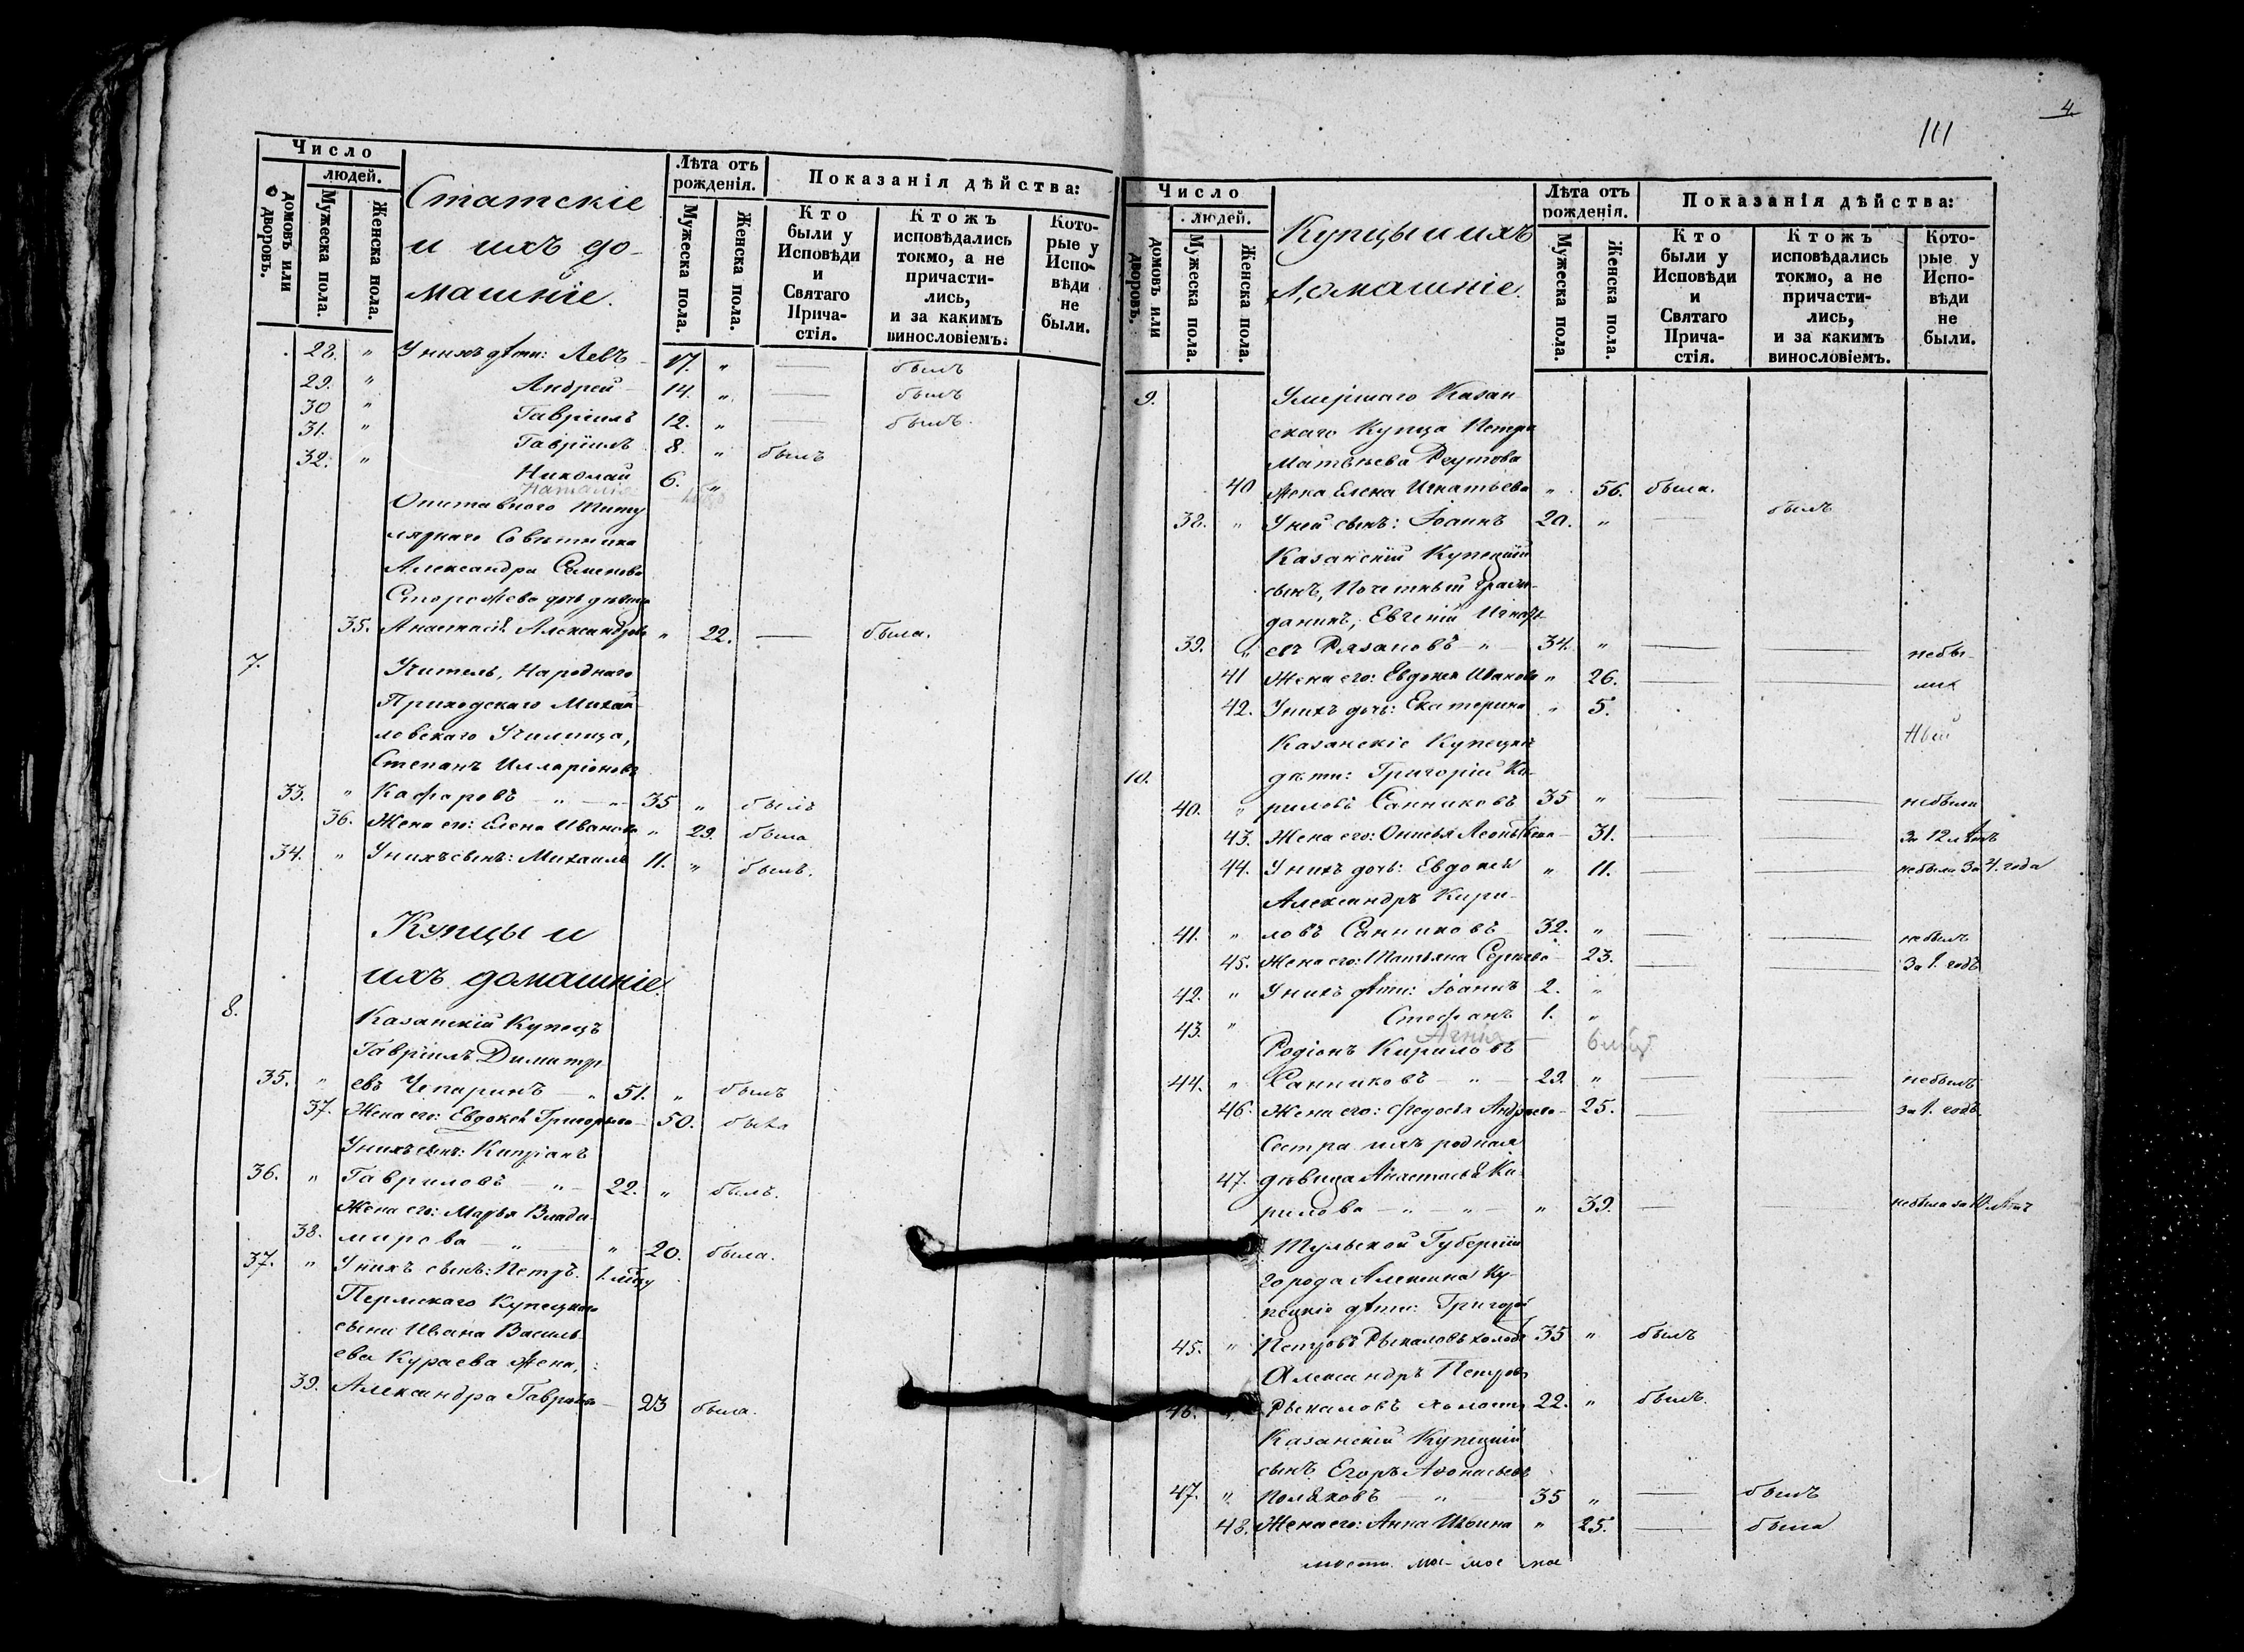 Число
людей.
домовъ или дворовъ.
Мужеска пола.
Женска пола.
Статскіе
и ихъ до-
машніе.
Лѣта отъ рожденія.
Мужеска пола.
Женска пола.
Показанія дѣйства:
Кто были у Исповѣди и Святаго Прича-стія.
Ктожъ исповѣдались токмо, а не причасти-лись, и за какимъ винословіемъ.
Кото-рые у Испо-вѣди не были.
28. " У нихъ дѣти: Левъ 17. " — былъ
29. " Андрей 14. " — былъ
30 " Гавріилъ 12. " — былъ.
31. " Гавріилъ 8. " былъ
32. " Николай 6. "
Наталія
Отставного Титу
лярнаго Совѣтника
Александра Семенова
Сторожева дочь дѣвица
35. Анастасія Александрова " 22. — была.
7. Учитель, Народнаго
Приходскаго Михай
ловскаго Училища,
Степанъ Илларіоновъ
33. " Кафаровъ — " — " 35 " былъ
36. Жена его: Елена Иванова " 29. была
34. " У нихъ сынъ: Михаилъ 11. " былъ.
Купцы и
ихъ домашніе.
8. Казанскій Купецъ
Гавріилъ Димитрі-
35. " евъ Чепаринъ — " 51. " былъ
37. Жена его: Евдокія Григорьева — 50. была
У нихъ сынъ: Кипріанъ
36. " Гавриловъ — " — 22. " былъ.
Жена его: Марья Влади-
38. мирова — " — " 20. была.
37. " У нихъ сынъ: Петръ. 1. году
Пермскаго Купецкаго
сына Ивана Василь-
ева Кураева жена,
39. Александра Гаврилова — 23 была.
4
111
Число
людей.
домовъ или дворовъ.
Мужеска пола.
Женска пола.
Купцы и ихъ
Домашніе.
Лѣта отъ рожденія.
Мужеска пола.
Женска пола.
Показанія дѣйства:
Кто были у Исповѣди и Святаго Прича-стія.
Ктожъ исповѣдались токмо, а не причасти-лись, и за какимъ винословіемъ.
Кото-рые у Испо-вѣди не были.
9. Умершаго Казан-
скаго Купца Петра
Матвѣева Реутова
40 жена Елена Игнатьева " 56. была.
38. " У ней сынъ: Іоаннъ 20. " — былъ
Казанскій Купецкій
сынъ, Почетный Граж-
данинъ, Евгеній Игнать-
39. " евъ Рязановъ — " — 34. " — — небы-
41 Жена его: Евдокія Иванова " 26. — — ли
42. У нихъ дочь: Екатерина " 5.
Казанскіе Купецкіе
10. дѣти: Григорій Ки-
40. " риловъ Санниковъ 35 " — — небыли
43. Жена его: Онисья Леонтьева — 31. — — За 12 лѣтъ
44. У нихъ дочь: Евдокія " 11. — — небыла За 4. года
Александръ Кири-
41. " ловъ Санниковъ 32. " — — небылъ
45. Жена его: Татьяна Сергѣева — 23. — — За 1. годъ
42. " У нихъ дѣти: Іоаннъ 2. "
43. " Стефанъ 1. "
Родіонъ Кириловъ
44. " Санниковъ — " — 29. " — — небылъ
46. Жена его: Федосья Андреева — 25. — — за 1. годъ
Сестра ихъ родная
47. дѣвица Анастасія Ки-
рилова — " — " — " 39. — — небыла за 10. лѣтъ
Тульской Губерніи
города Алексина Ку-
пецкіе дѣти: Григорій
45. " Петровъ Рыкаловъ холостъ 35 " былъ
Александръ Петровъ
46. " Рыкаловъ холостъ 22. " былъ.
Казанскій Купецкій
сынъ Егоръ Афонасьевъ
47. " Поляковъ — " — 35 " — былъ
48. Жена его: Анна Ильина " 25. — была